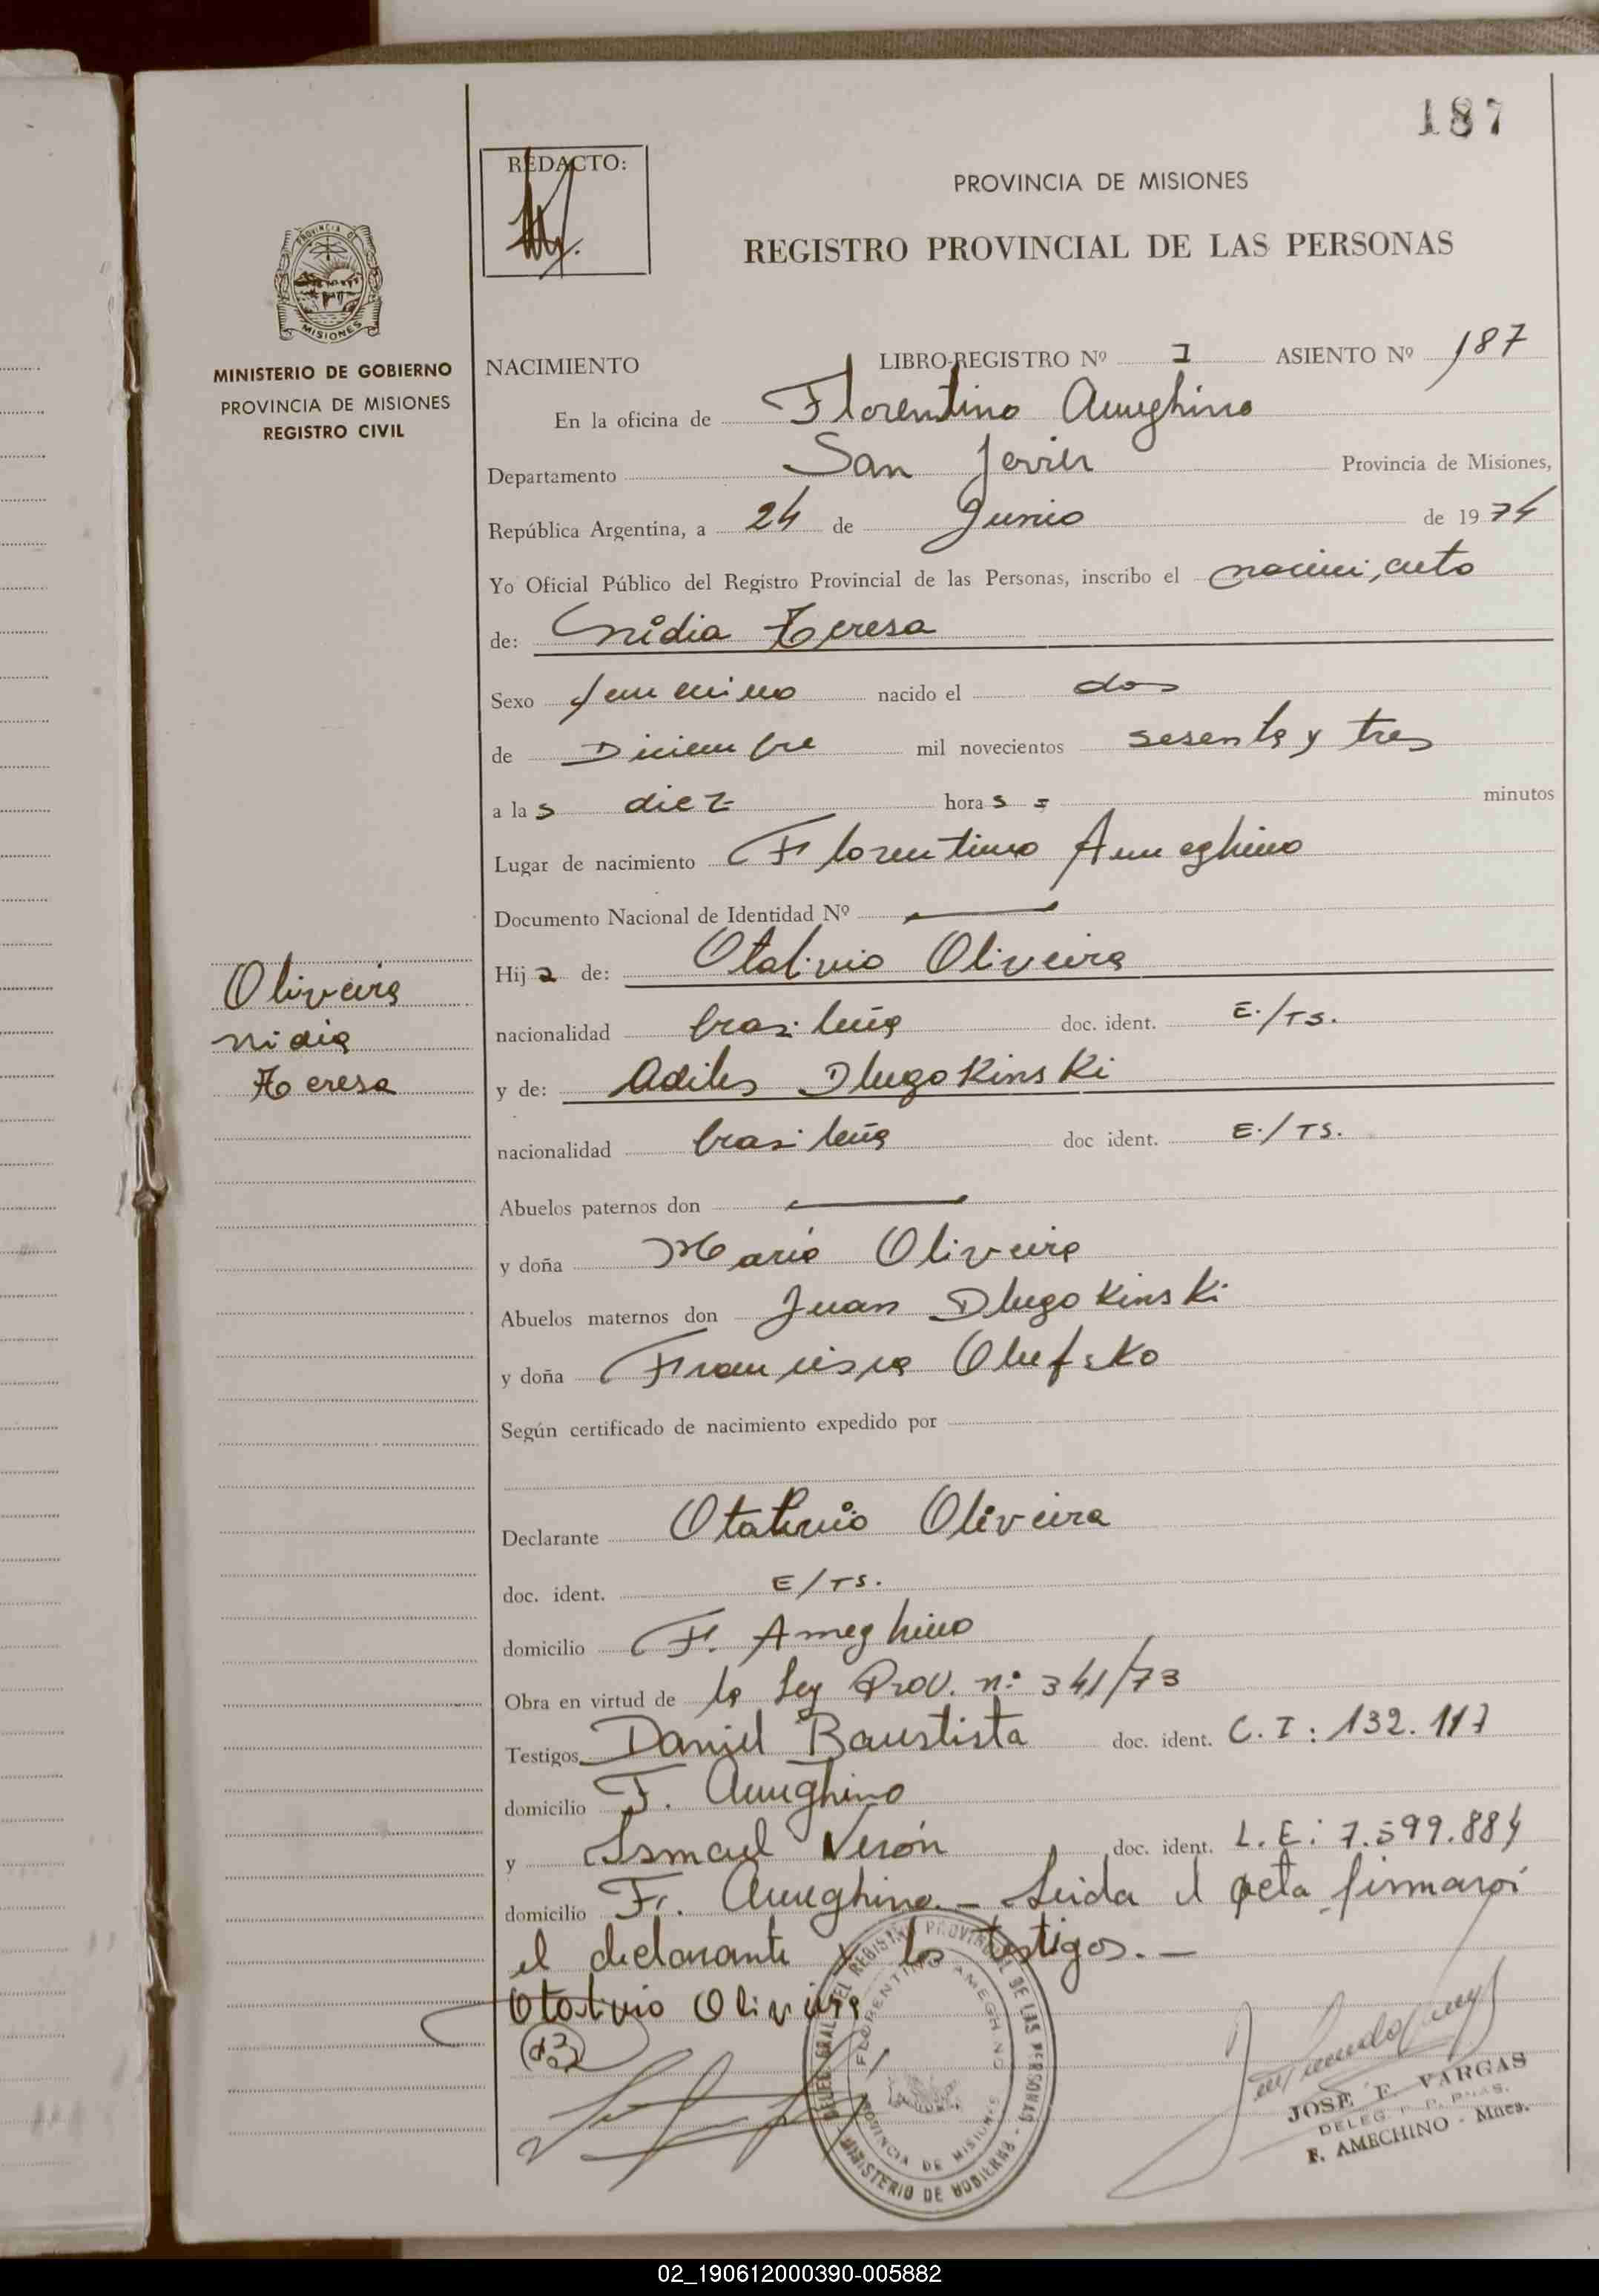 187
REDACTO:
PROVINCIA DE MISIONES
REGISTRO PROVINCIAL DE LAS PERSONAS
PROVINCIA DE
MISIONES
MINISTERIO DE GOBIERNO
PROVINCIA DE MISIONES
REGISTRO CIVIL
NACIMIENTO LIBRO-REGISTRO Nº I ASIENTO Nº 187
En la oficina de Florentino Ameghino
Departamento San Javier Provincia de Misiones,
República Argentina, a 24 de Junio de 1974
Yo Oficial Público del Registro Provincial de las Personas, inscribo el nacimiento
de: Nidia Teresa
Sexo femenino nacido el dos
de Diciembre mil novecientos sesenta y tres
a las diez horas = minutos
Lugar de nacimiento Florentino Ameghino
Documento Nacional de Identidad Nº
Hija de: Otalivio Oliveira
nacionalidad brasileña doc. ident. E./TS.
y de: Adiles Dlugokinski
nacionalidad brasileña doc ident. E./TS.
Oliveira
Nidia
Teresa
Abuelos paternos don
y doña Maria Oliveira
Abuelos maternos don Juan Dlugokinski
y doña Francisca
Según certificado de nacimiento expedido por
Declarante Otalivio Oliveira
doc. ident. E/TS.
domicilio F. Ameghino
Obra en virtud de la Ley Prov. nº 341/73
Testigos Daniel Baustista doc. ident. C.I: 132.117
domicilio F. Ameghino
y Ismael Verón doc. ident. L.E: 7.599.884
domicilio F. Ameghino.- Leida el acta firmaroi
el declarante y los testigos.-
Otalivio Oliveira
DELEG. GRAL. DEL REGISTRO PROVINCIAL DE LAS PERSONAS
FLORENTINO AMEGHINO
PROVINCIA DE MISIONES
MINISTERIO DE GOBIERNO
JOSE E. VARGAS
DELEG. R. P. PNAS.
F. AMECHINO - Mnes.
02_190612000390-005882